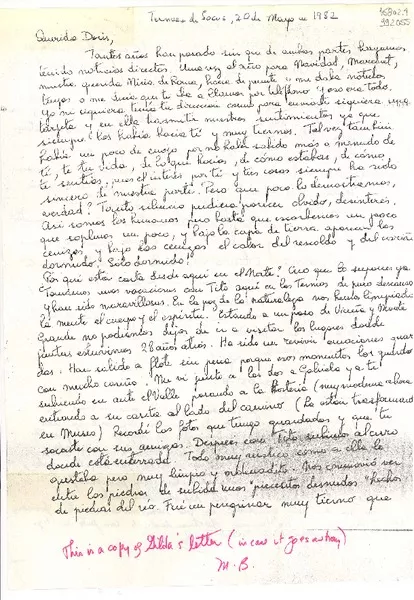 Termas de Socos, 20 de Mayo de 1982
Querida Doris,
Tantos años han pasado sin que de ambas partes hayamos
tenido noticias directas. Una vez al año para Navidad, Margaret,
nuestra querida Alicia de Roma, hacía de puente y me daba noticias
tuyas o me decía que te iba a llamar por teléfono y eso era todo.
Yo ni siquiera tenía tu dirección como para enviarte siquiera una
tarjeta y en ella trasmitir nuestros sentimientos ya que
siempre los había hacia ti y muy tiernos. Tal vez también
había un poco de enojo por no haber sabido más a menudo de
ti, de tu vida, de lo que hacías, de cómo estabas, de cómo
te sentías, pues el interés por ti y tus cosas siempre ha sido
sincero de nuestra parte. Pero que poco lo demostramos,
verdad? Tanto silencio pudiera parecer olvido, desinterés.
Así somos los humanos pero basta que escarbemos un poco
que soplemos un poco, y bajo la capa de tierra aparecen las
cenizas y bajo las cenizas el calor del rescoldo y del cariño
dormido! Sólo dormido!
Por qué esta carta desde aquí en el Norte? Creo que lo supones ya.
Tomamos unas vacaciones con Tito aquí en las Termas de puro descanso
y han sido maravillosas. En la paz de la naturaleza nos hemos limpiado
la mente el cuerpo y el espíritu. Estando a un paso de Vicuña y Monte
Grande no podíamos dejar de ir a visitar los lugares donde
juntas estuvimos 28 años atrás. Ha sido un revivir emociones guar
das. Han salido a flote sin pena porque esos momentos los guardo
con mucho cariño. Me vi junto a las dos a Gabriela y a ti
subiendo en auto el Valle pasando a la Hostería (muy moderna ahora)
entrando a su casita al lado del camino (La están trasformando
en Museo) Recordé las fotos que tengo guardadas y que tú
sacaste con sus amigas. Después con Tito subimos al cerro
donde está enterrada. Todo muy rústico como a ella le
gustaba pero muy limpio y ordenadito. Nos conmovió ver
entre las piedras de subida unos "piececitos desnudos" hechos
de piedras del río. Fué un peregrinar muy tierno que
This is a copy of Gilda's letter (in case it goes astray)
M. B.